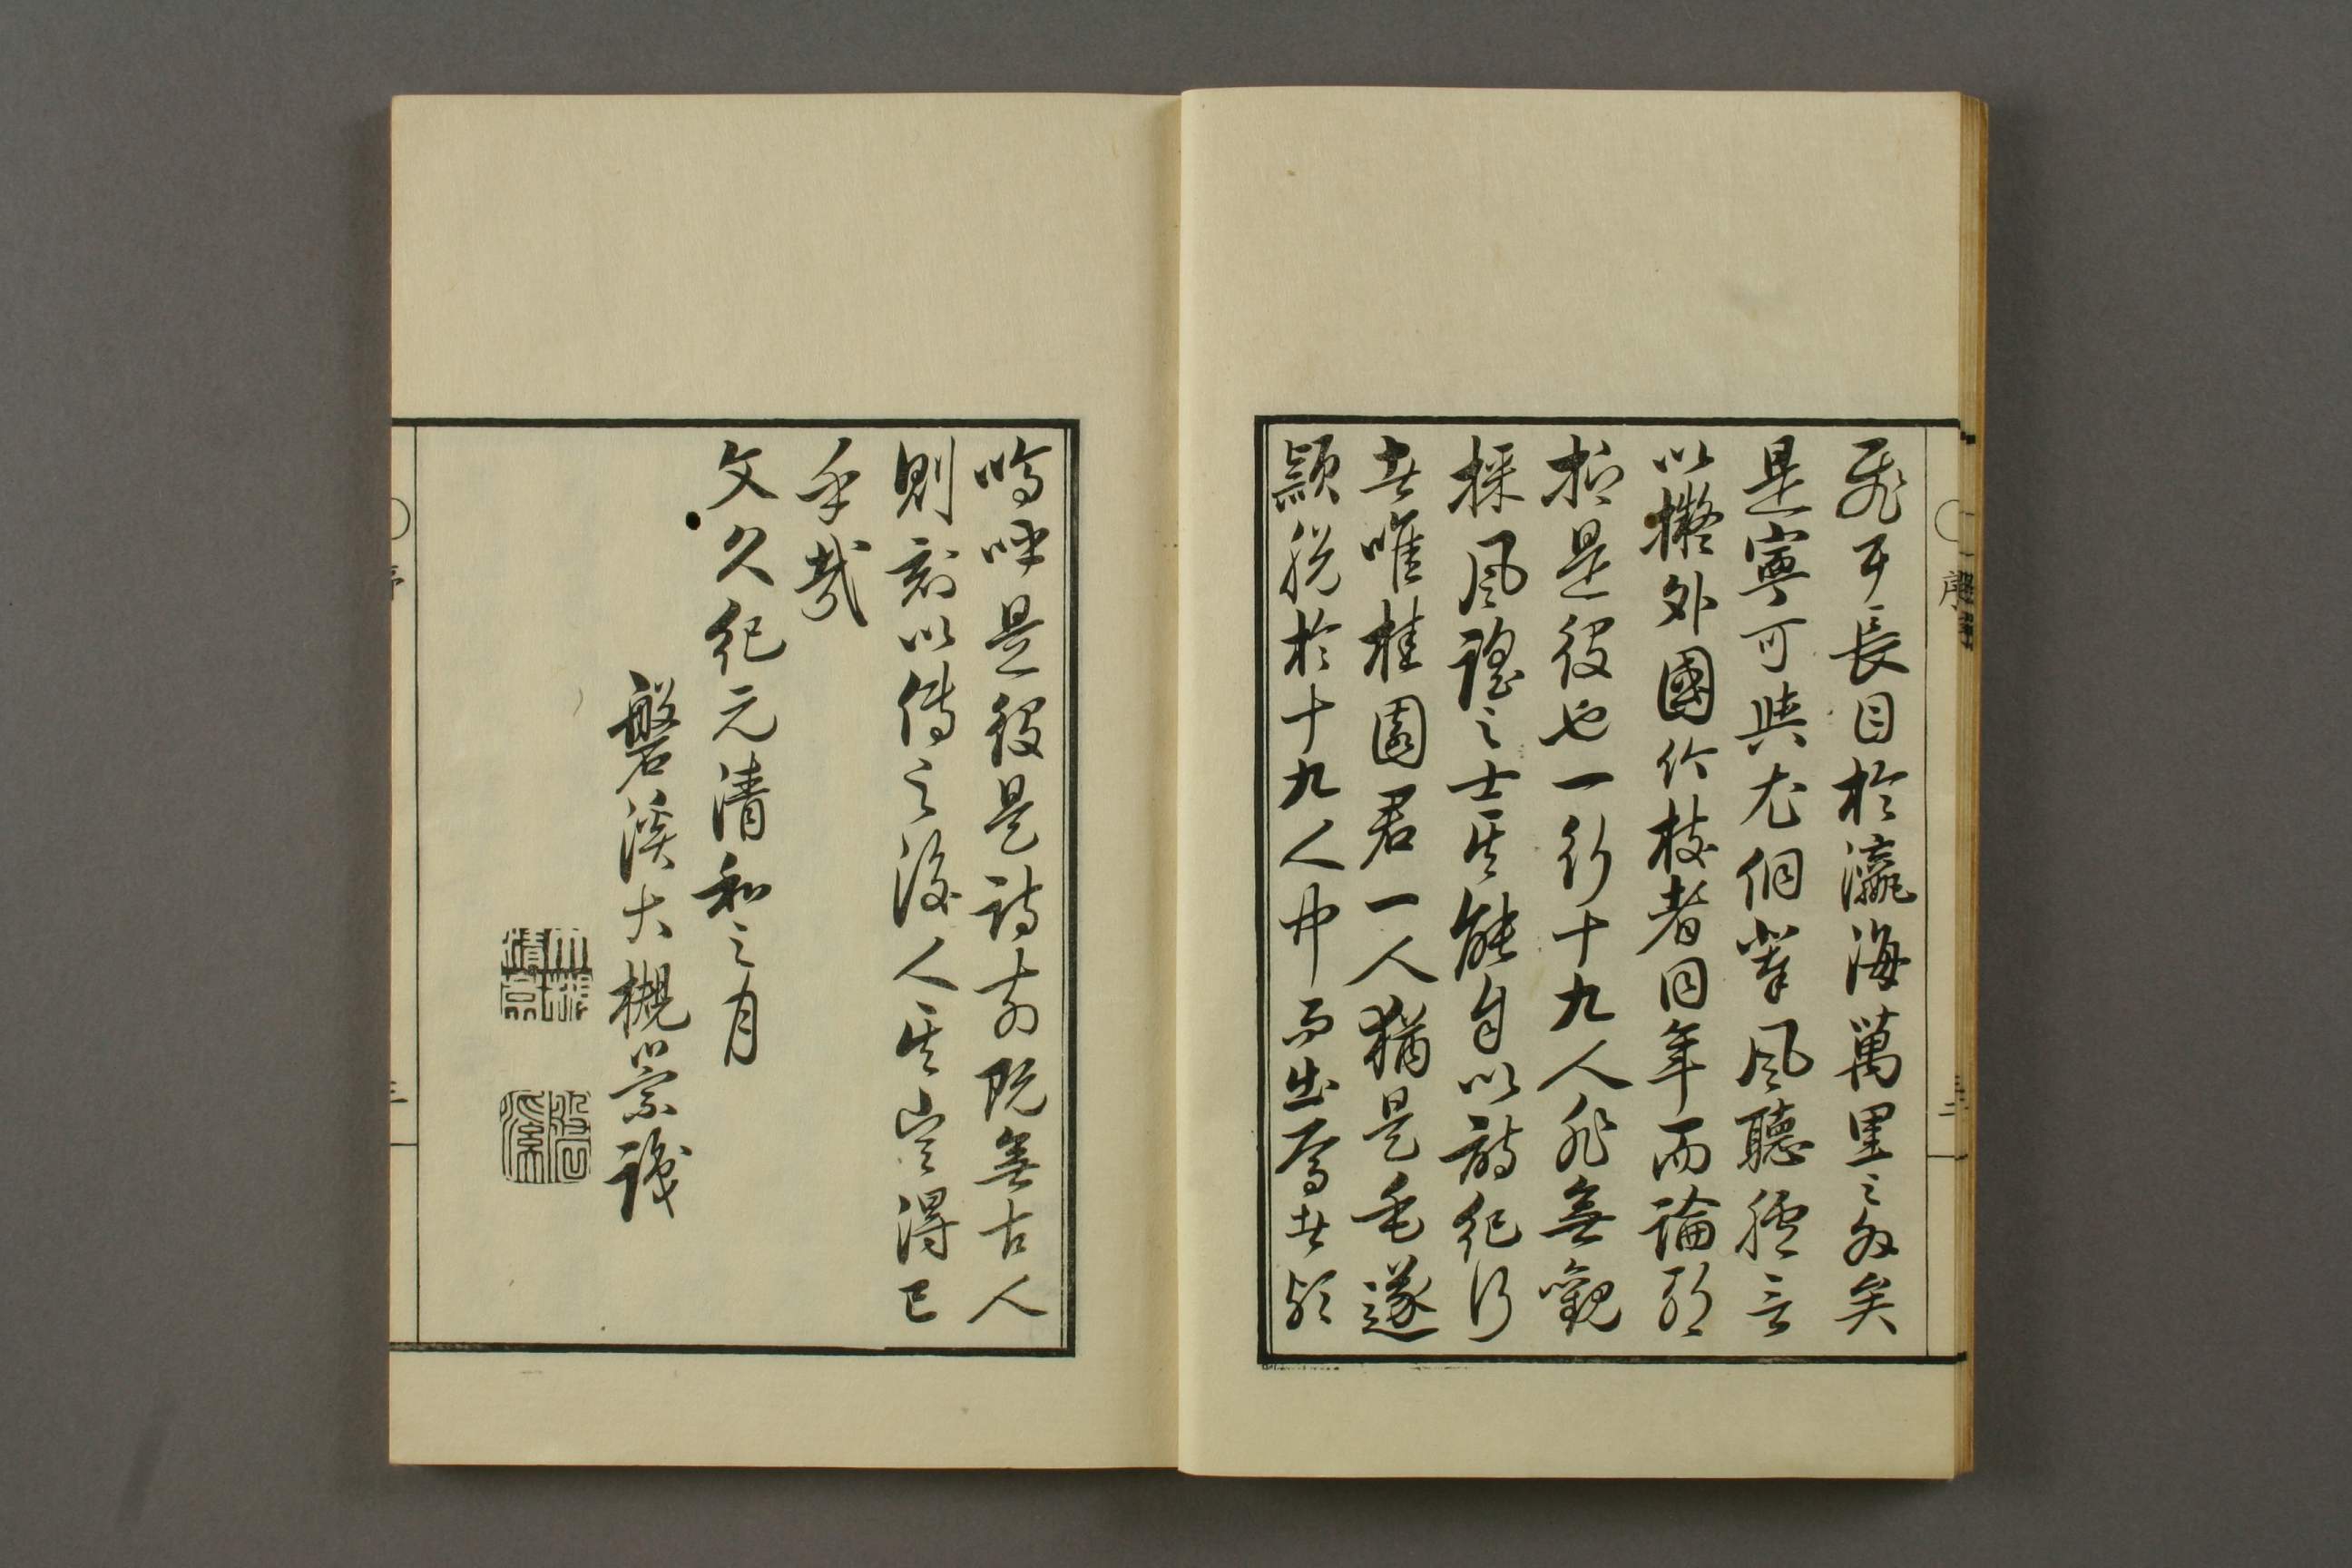 飛耳長目於瀛海萬里之外矣
是寧可與尤侗輩風聽臚言
以擬外國竹枝者同年而論耶
抑是役也一行十九人非無觀
採風謠之士其能自以詩紀行
者唯桂園君一人猶是毛遂
穎脱於十九人中而出焉者歟
嗚呼是役是詩前既無古人
則刻以傳之後人其豈得已
乎哉
文久紀元清和之月
磐溪大槻崇識
序
三